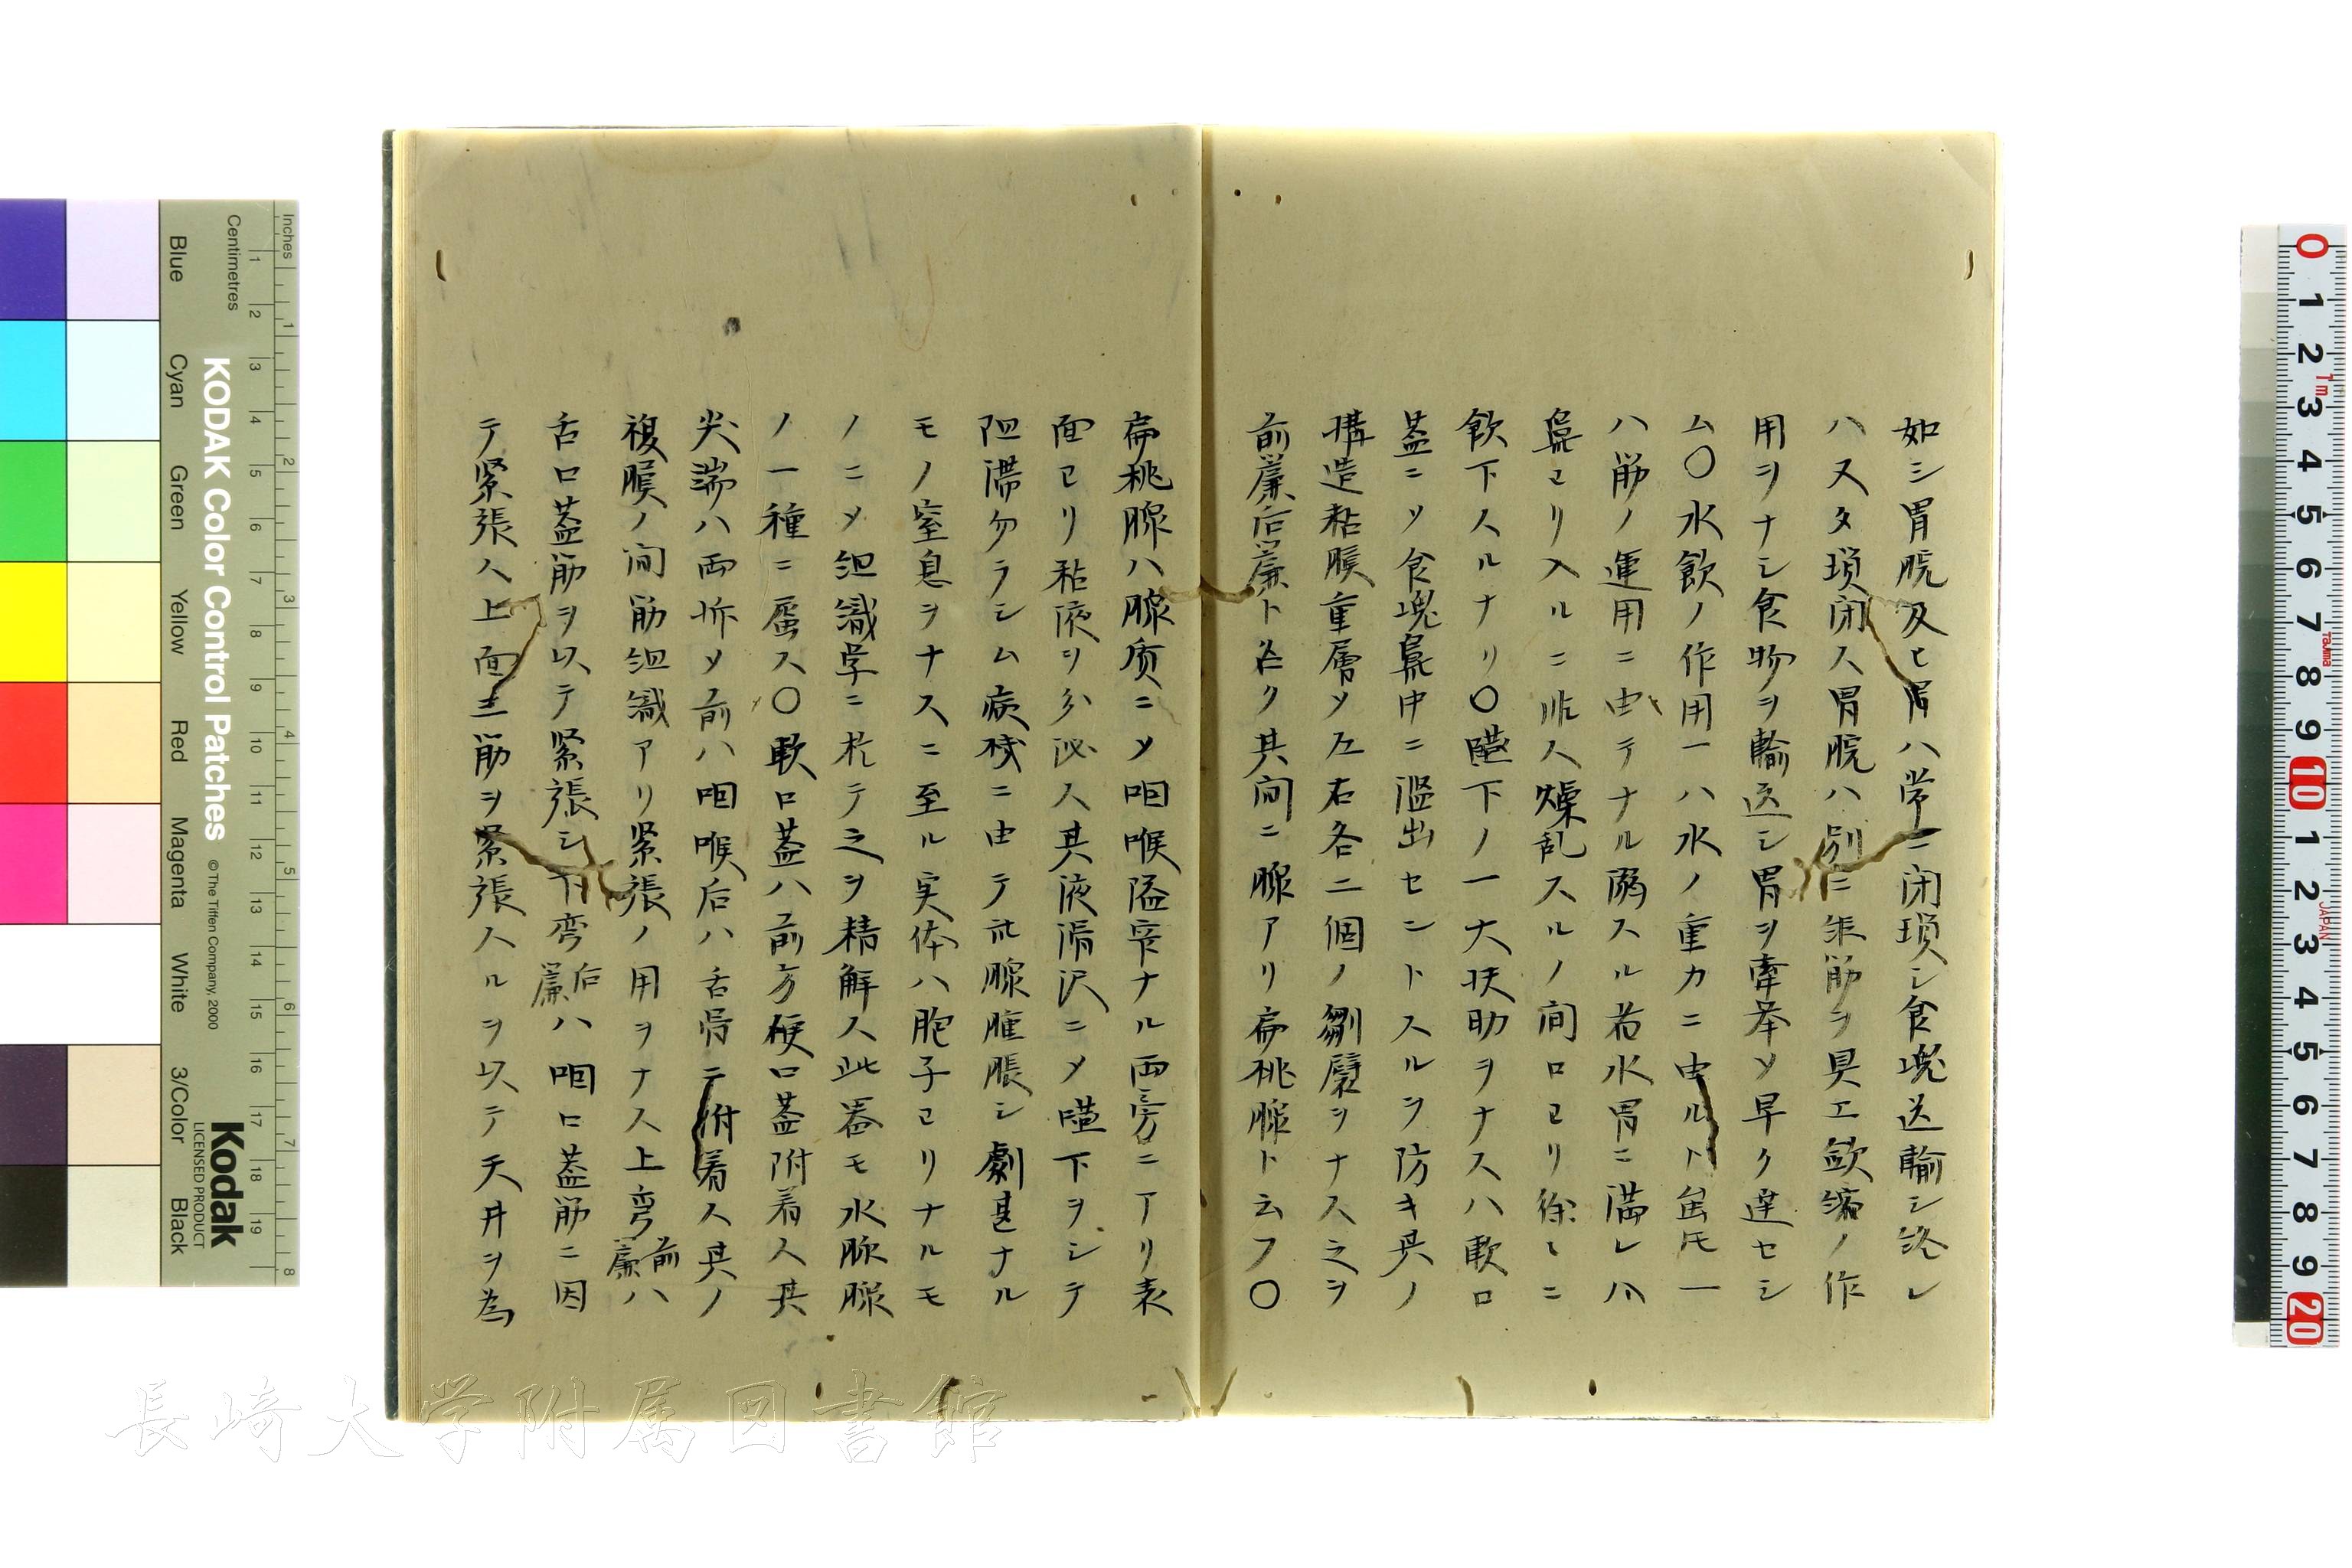 如シ胃脘及ヒ胃ハ常ニ闭璅シ食塊送輸シ終レ
ハ又タ璅闭ス胃脘ハ別ニ筋ヲ具エ歛縮ノ作
用ヲナシ食物ヲ輸送シ胃ヲ牽挙〆早ク達セシ
ム〇水飲ノ作用一ハ水ノ重力ニ由ルト虽𪜈一
ハ筋ノ運用ニ由テナル隔スル若水胃ニ満レハ
鼻ヨリ入ルニ非ス燥乱スルノ间口ヨリ徐〻ニ
飲下スルナリ〇嚥下ノ一大扶助ヲナスハ軟口
蓋ニ〆食塊鼻中ニ溢出セントスルヲ防キ其ノ
搆造粘膜重層〆左右各二個ノ皺襞ヲナス之ヲ
前簾后簾ト名ク其间ニ腺アリ扁桃腺ト云フ〇
扁桃腺ハ腺质ニ〆咽喉隘窄ナル両旁ニアリ表
面ヨリ粘液ヲ分泌ス其液滑沢ニ〆嚥下ヲシテ
阻滞勿ラシム病機ニ由テ此腺腫脹シ劇甚ナル
モノ窒息ヲナスニ至ル実体ハ胞子ヨリナルモ
ノニ〆组織学ニ於テ之ヲ精解ス此器モ水脈腺
ノ一種ニ属ス〇軟口蓋ハ前方硬口蓋附着ス其
尖端ハ両折〆前ハ咽喉后ハ舌骨ニ附着ス其ノ
複膜ノ间筋组織アリ緊張ノ用ヲナス上弯前簾ハ
舌口蓋筋ヲ以テ緊張シ下弯后簾ハ咽口蓋筋ニ因
テ緊張ス上面ニ筋ヲ緊張スルヲ以テ天井ヲ為
長崎大学附属図書館
Inches
Centimetres
KODAK Color Control Patches
© The Tiffen Company, 2000
Kodak
LICENSED PRODUCT
Blue Cyan Green Yellow Red Magenta White 3/Color Black
1 2 3 4 5 6 7 8 9 10 11 12 13 14 15 16 17 18 19
1 2 3 4 5 6 7 8
0 1 2 3 4 5 6 7 8 9 10 1 2 3 4 5 6 7 8 9 20
1m
Tajima
JAPAN